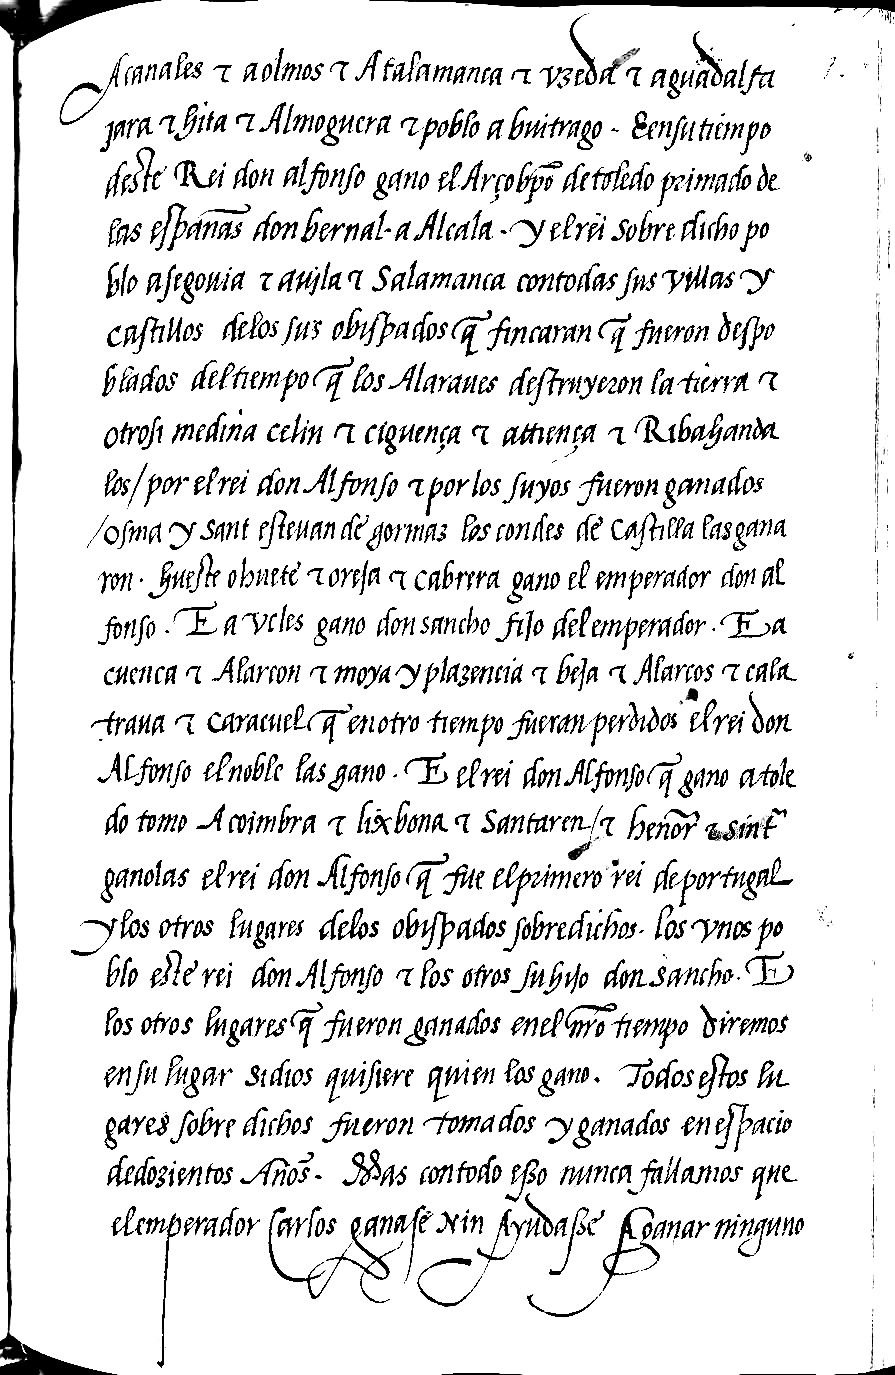 Acanales ⁊ aolmos ⁊ Atalamanca ⁊ vzeda ⁊ aguadalfa
jara ⁊ hita ⁊ Almoguera ⁊ poblo a buitrago - E ensu tiempo
deste Rei don alfonso gano el Arçobp̄o detoledo primado de
las españas don bernal· a Alcala · y el rei sobre dicho po
blo asegouia ⁊ auila ⁊ Salamanca contodas sus villas y
castillos delos sus obispados q̄ fincaran q̄ fueron despo
blados deltiempo q̄ los Alaraues destruyeron la tierra ⁊
otrosi medina celin ⁊ ciguença ⁊ attiença ⁊ Ribahanda
los/ por el rei don Alfonso ⁊ por los suyos fueron ganados
/osma y sant esteuan de gormaz los condes de castilla las gana
ron· hueste ohuete ⁊ oreja ⁊ cabrera gano el emperador don al
fonso . E a vcles gano don sancho fijo del emperador · E a
cuenca ⁊ Alarcon ⁊ moya y plazencia ⁊ beja ⁊ Alarcos ⁊ cala
traua ⁊ caracuel q̄ en otro tiempo fueran perdidos el rei don
Alfonso el noble las gano · E el rei don Alfonso q̄ gano atole
do tomo Acoimbra ⁊ lixbona ⁊ Santaren/⁊
ganolas el rei don Alfonso q̄ fue el primero rei de portugal
y los otros lugares delos obispados sobredichos· los vnos po
blo este rei don Alfonso ⁊ los otros su hijo don sancho· E
los otros lugares q̄ fueron ganados enel nr̄o tiempo diremos
ensu lugar sidios quisiere quien los gano. Todos estos lu
gares sobre dichos fueron tomados y ganados en espacio
dedozientos Años- Mas contodo esso nunca fallamos que
el emperador Carlos ganase nin Ayudasse Aganar ninguno